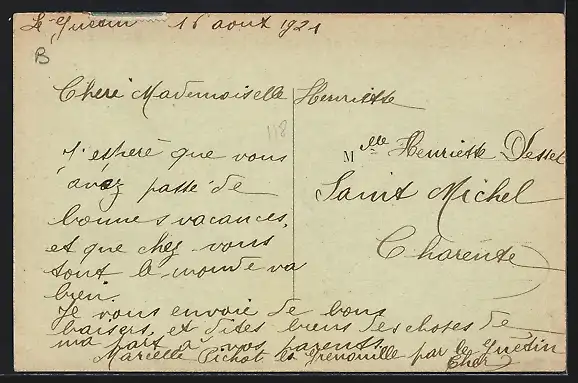 Le Guétin 16 août 1921
B
Chere Mademoiselle Henriette
118
J'espère que vous
avez passé de
bonnes vacances,
et que chez vous
tout le monde va
bien.
Je vous envoie de bons
baisers, et dites biens des choses de
ma part à vos parents.
Marcelle Pichot la Grenouille par le Guétin
Cher
M lle Henriette
Saint Michel
Charente